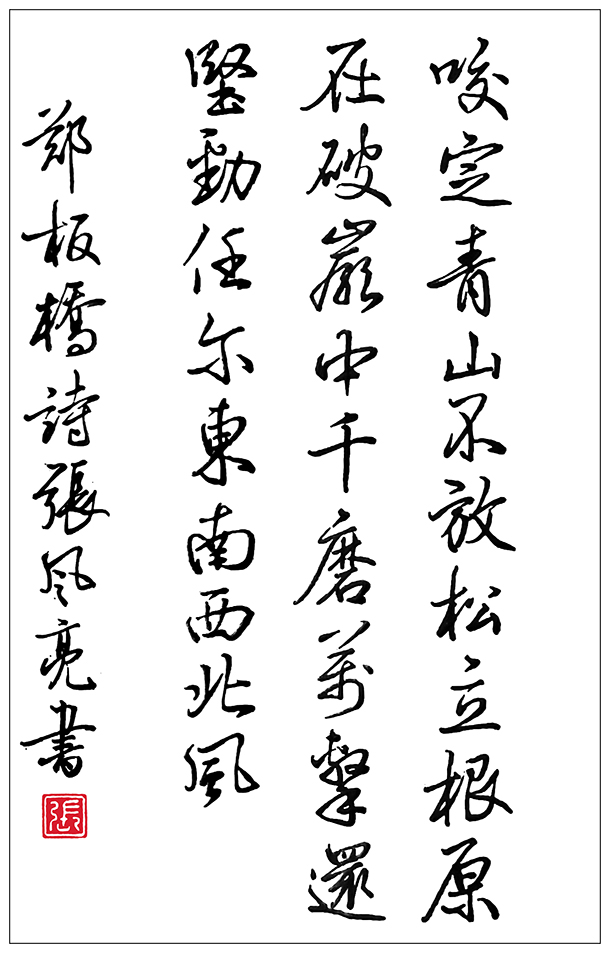 咬定青山不放松立根原
在破巖中千磨萬擊還
堅勁任尔東南西北風
郑板橋詩張风亮書
張